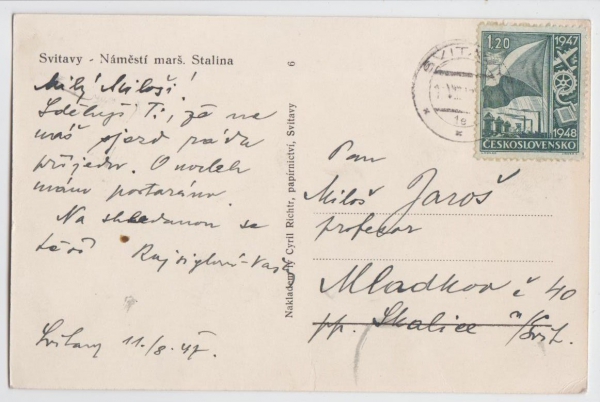 Svitavy - Náměstí marš. Stalina
6
Milý Miloši!
Sděluji Ti, že na
váš sjezd rádi
přijedu. O nocleh
mám postaráno.
Na shledanou se
těší
Svitavy 11./8. 47.
Nakladem fy Cyril Richtr, papírnictví, Svitavy
SVIT
1,20
1947
1948
ČESKOSLOVENSKO
Pan
Miloš Jaroš
profesor
Mladkov č 40
pp. Skalice n/Svit.